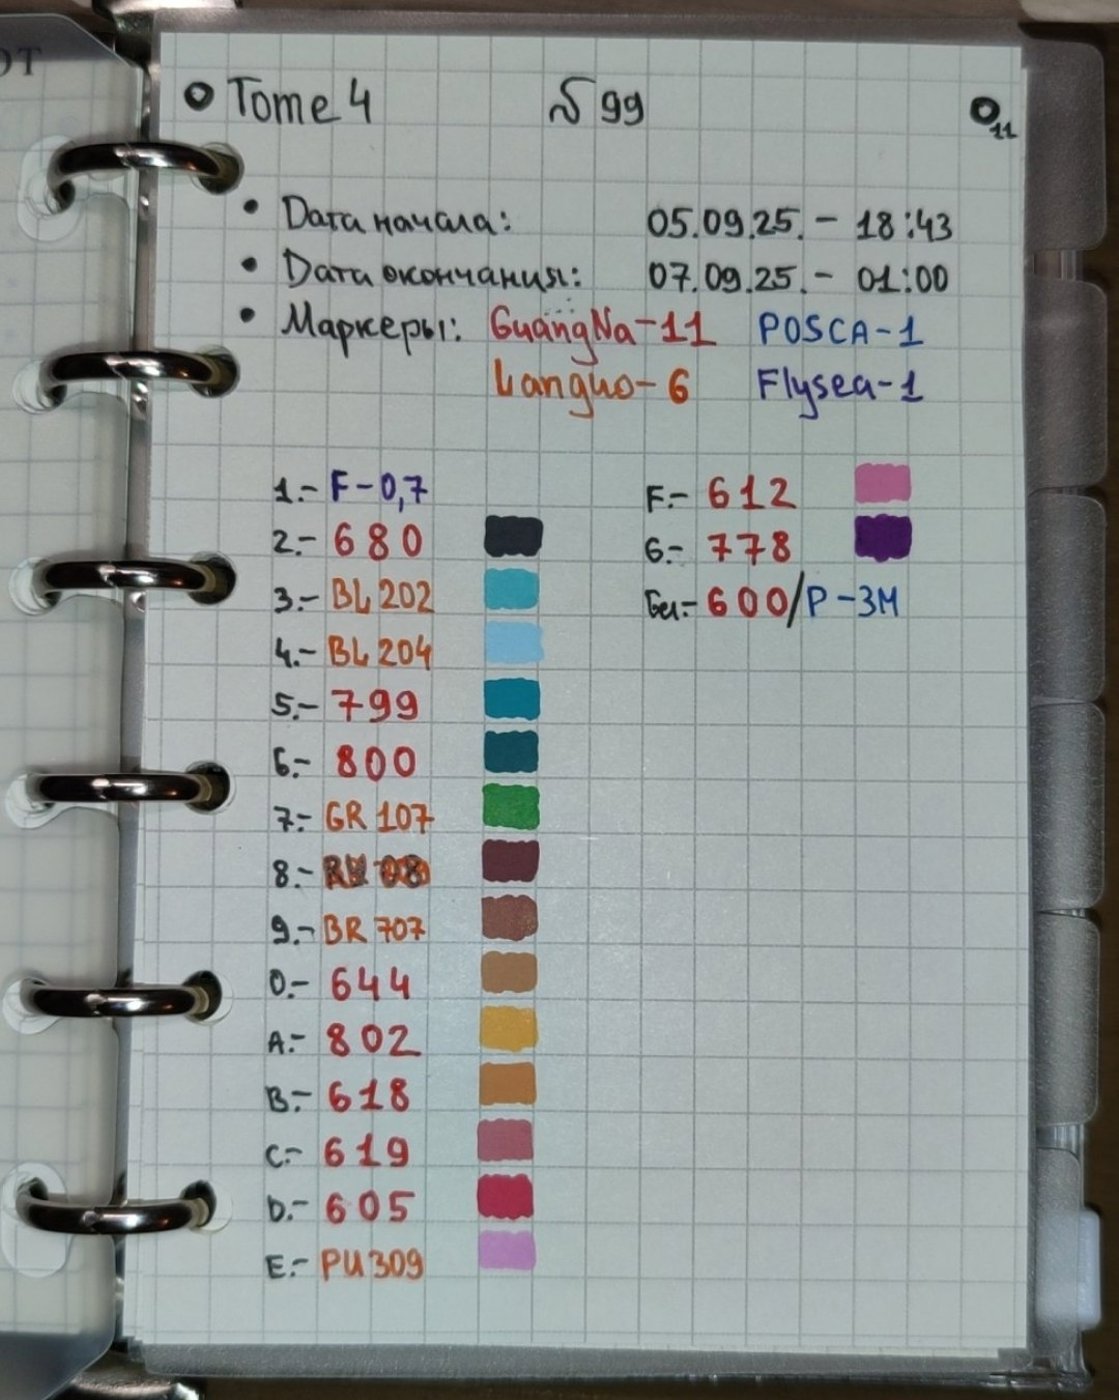 Tome 4 № 99 11
Дата начала: 05.09.25. - 18:43
Дата окончания: 07.09.25. - 01:00
Маркеры: GuangNa-11 POSCA-1
Languo-6 Flysea-1
1.- F-0,7
2.- 680
3.- BL 202
4.- BL 204
5.- 799
6.- 800
7.- GR 107
8.-
9.- BR 707
0.- 644
A.- 802
B.- 618
C.- 619
D.- 605
E.- PU309
F.- 612
G.- 778
Бл.- 600/P-3M
ОТ